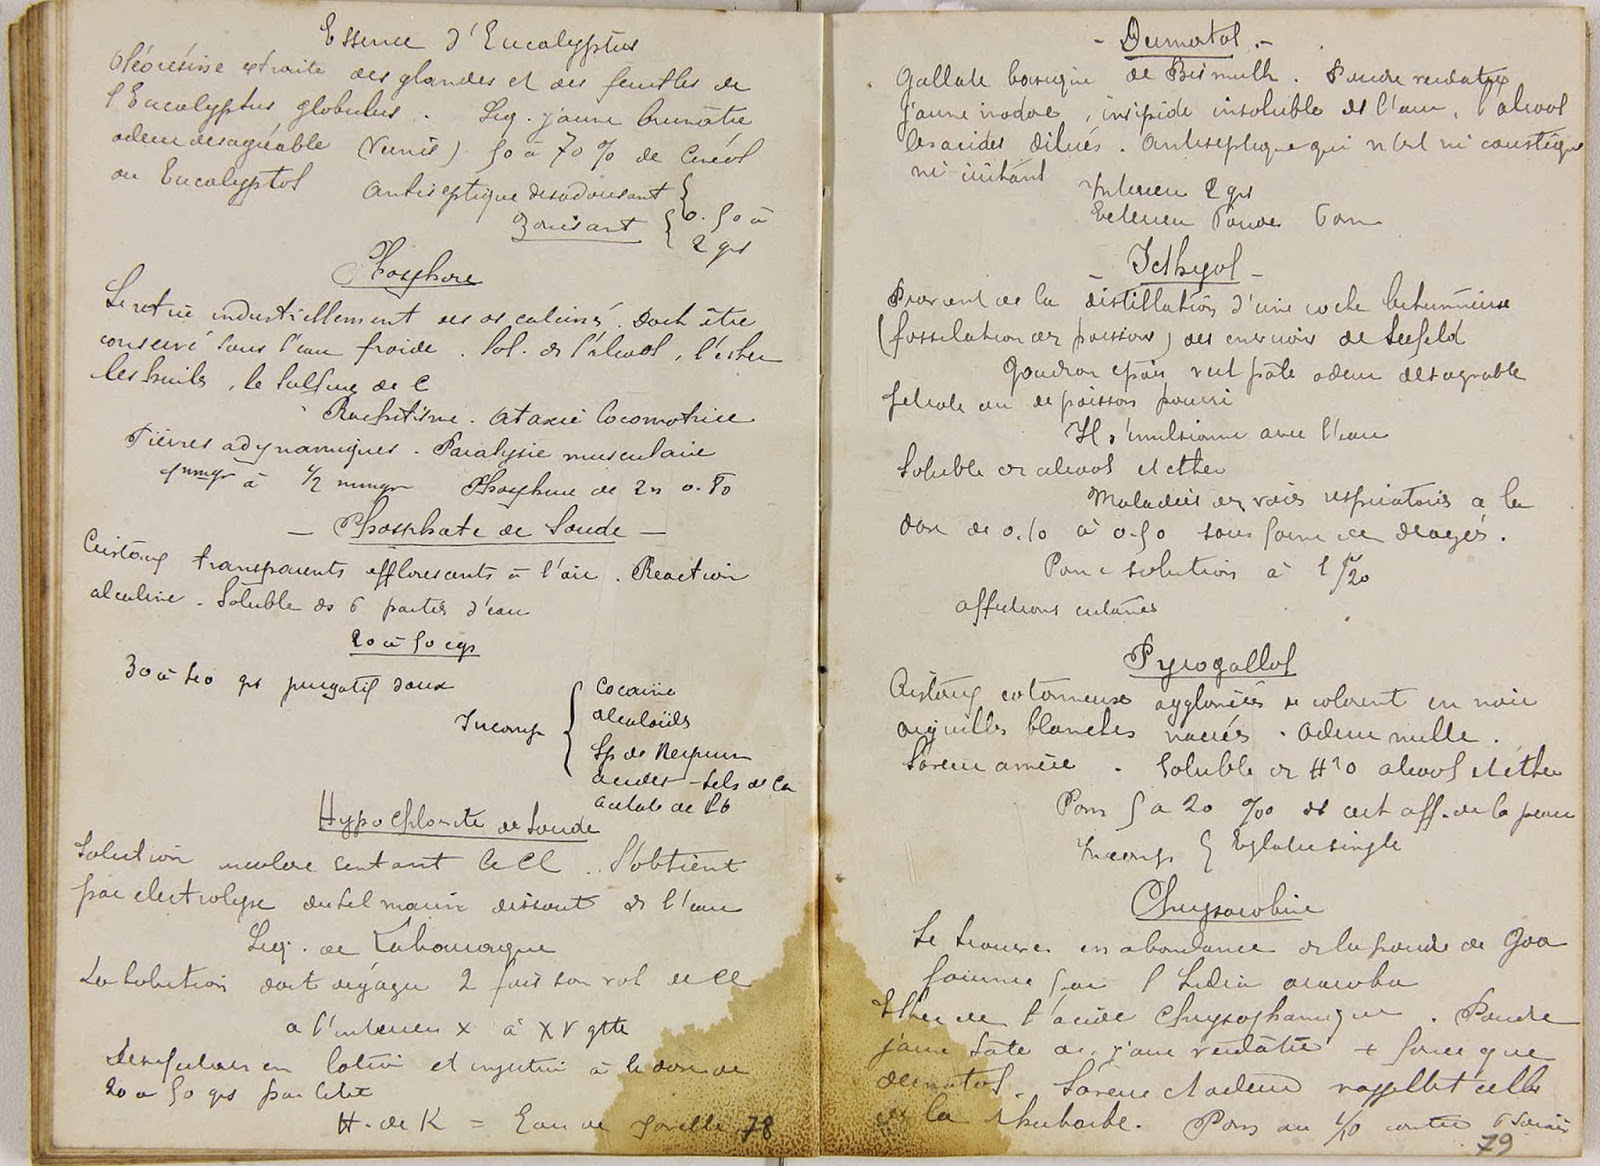 Essence d'Eucalyptus
Oléorésine extraite des glandes et des feuilles de
l'Eucalyptus globulus. Liq. jaune brunâtre
odeur desagréable (Vernis) 50 à 70 % de Cinéol
ou Eucalyptol Antiseptique desodorisant
0.50 à
2 grs
Phosphore
Se retire industriellement des os calcinés. Doit être
conservé sous l'eau froide. Sol. ds l'alcool, l'ether
les huiles, le sulfure de C
Rachitisme. Ataxie locomotrice
Fièvres adynamiques. Paralysie musculaire
1 mmgr à 1/2 mmgr Phosphure de Zn 0.80
- Phosphate de Soude -
Cristaux transparents efflorescents à l'air. Reaction
alcaline. Soluble ds 6 parties d'eau
20 à 50 cgr
30 à 40 grs purgatif doux
Incomp
Cocaïne
alcaloïds
Sp de Neprun
acides - Sels de Ca
acetate de Pb
Hypochlorite de Soude
Solution incolore sentant le Cl. S'obtient
par electrolyse du sel marin dissout ds l'eau
Liq. de Labarraque
La Solution doit dégager 2 fois son vol de Cl
a l'interieur X à XV gtte
en lotion et injection à la dose de
20 à 50 grs par litre
H. de K = Eau de Javelle 78
- Dermatol -
Gallate basique de Bismuth. Poudre
jaune inodore, insipide insoluble ds l'eau, l'alcool
les acides dilués. Antiseptique qui n'est ni caustique
ni irritant
Interieur 2 grs
Exterieur Poudre Pom
- Icthyol -
Provient de la distillation d'une roche bitumineuse
(fossilation des poissons) des environs de Seefeld
Goudron epais odeur desagreable
ou de poisson pourri
Il s'emulsionne avec l'eau
Soluble ds alcool et ether
Maladies des voies respiratoires a la
dose de 0.10 à 0.50 sous forme de dragés.
Pom solution à
affections cutanées
Pyrogallol
Cristaux cotonneux agglomérés se colorent en noir
aiguilles blanches nacrés. Odeur nulle.
Saveur amère. Soluble ds H²O alcool et ether
Pom 5 à 20 % ds cert aff. de la peau
Incomp
Chrysarobine
Se trouve en abondance ds la poudre de Goa
fournie par l'Andira araroba
Ether de l'acide Chrysophanique. Poudre
jaune de jaune verdâtre + foncé que
dermatol. Saveur et odeur rappellent celles
de la rhubarbe. Pom au 1/10 contre Psoriasis
79